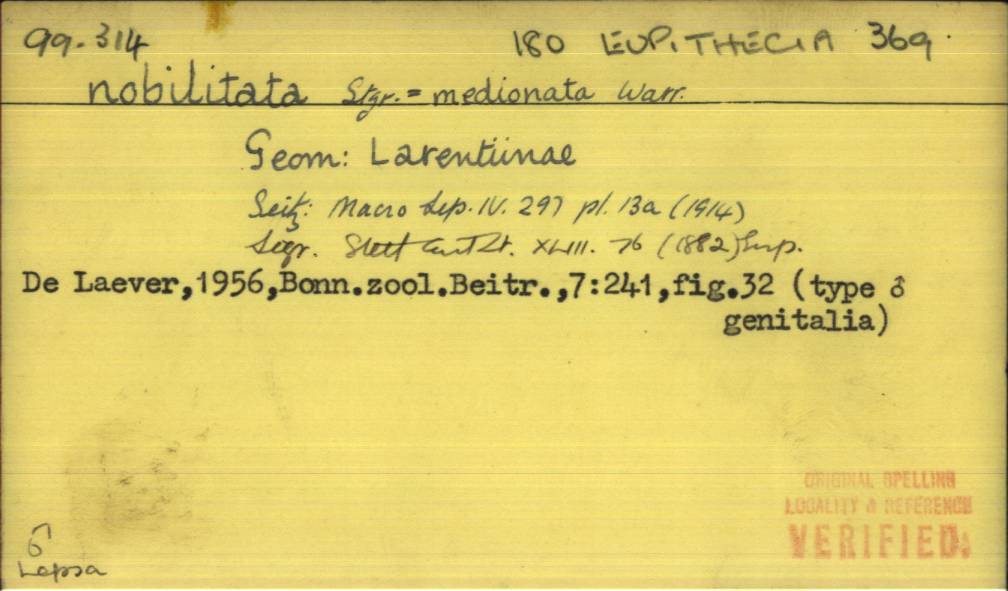 99.314 180 EUPITHECIA 369.
nobilitata Stgr. = medionata Warr.
Geom: Larentiinae
Seitz: Macro Lep. IV. 297 pl. 13a (1914)
Stett ent Zt. XLIII. 76 (1882)
De Laever,1956,Bonn.zool.Beitr.,7:241,fig.32 (type ♂
genitalia)
ORIGINAL SPELLING
LOCALITY & REFERENCE
VERIFIED
♂
Lepsa